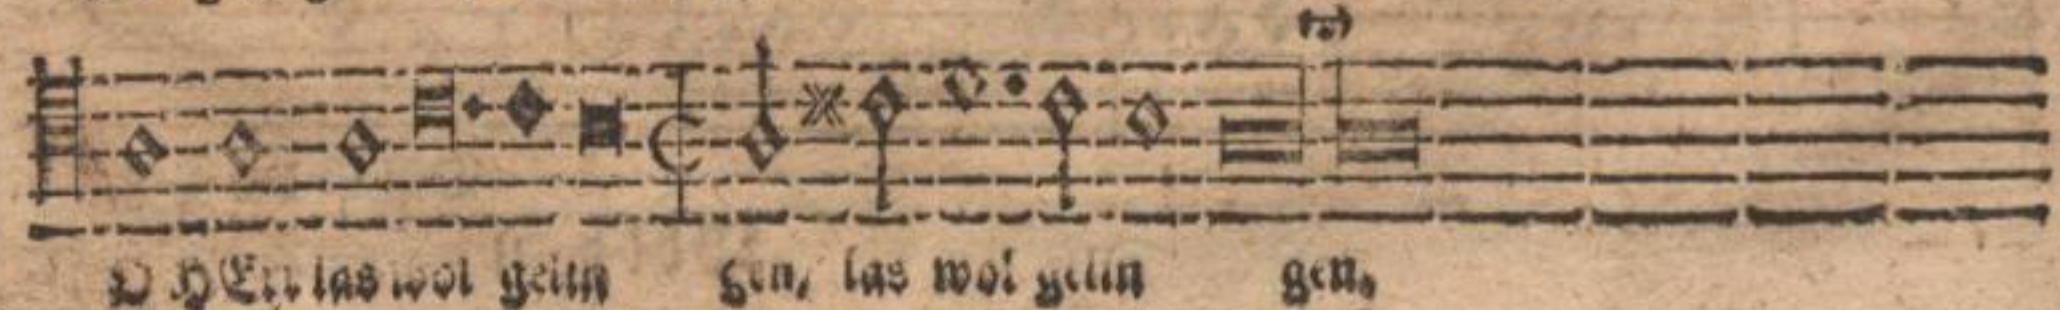 O HErr las wol gelin gen, las wol gelin gen,